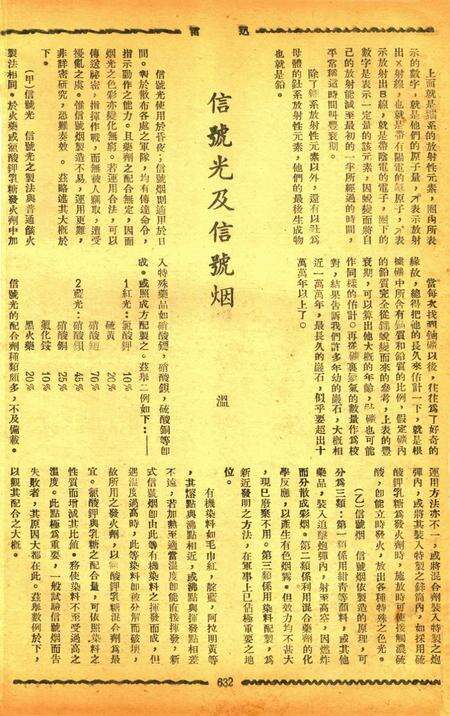 上面就是鐳系的放射性元素，圈內所表
示的數字，就是他們的原子量，↗表示放射
出×射線，也就是帶有陽電的氦原子，↗表
示放射出B線，就是帶陰電的電子，圈下的
數字是表示一定量的該元素，因蛻變而將自
己的放射能減至最初的一半所經過的時間，
平常稱這時間叫豐衰期。
除了鐳系放射性元素以外，還有以釷為
母體的釷系放射性元素，他們的最後生成物
也就是鉛。
當每次找到鈾礦以後，往往為了好奇的
緣故，總得把他的長久來估計一下，就是根
據礦中所含有鈾質和鉛質的比例，假定礦內
的鉛質完全從鐳蛻變而來的參考，上表的豐
衰期，可以算出他大概的年齡，釷礦也可能
作同樣的估計。再從礦裏氦氣的數量作為校
對，結果告訴我們許多年幼的巖石，大概相
近一萬萬年，最長大的巖石，似乎要超出十
萬萬年以上了。
信號光及信號烟
溫
信號光使用於昏夜；信號烟則適用於日
間。對於散布各處之軍隊，均有傳達命令，
指示動作之能力。且藥劑之配合無定，因而
烟光之色彩亦變化無窮。若運用合法，可以
傳送祕密，指揮作戰，而無被人竊取，遭受
擾亂之虞。惟信號烟製造不易，運用更難，
非詳密研究，恐難奏效。茲略述其大概於
下。
（甲）信號光　信號光之製法與普通儀火
製法相同。於火藥或氯酸鉀乳糖發火劑中加
入特殊藥品如硝酸鍶，硝酸鋇，硫酸銅等即
成。或照成方配製之。茲舉二例如下：——
1紅光：氯酸鉀　10％
硫黃　20％
硝酸鍶　70％
2藍光：硝酸鋇　45％
硝酸鉀　25％
氯化銨　10％
黑火藥　20％
信號光的配合劑種類頗多，不及備載。
運用方法亦不一，或將混合劑裝入特製之炮
彈內，或將其裝入特製之蘇筒內，如採用硫
酸鉀乳糖為發火劑時，施放時可使接觸濃硫
酸，卽能立時發火，放出各種特殊之色光。
（乙）信號烟　信號烟依製造的原理，可
分為三類：第一類係用紺青等顏料，或其他
藥品，裝入追擊炮彈內，射至高空，因燃炸
而分散成彩烟。第二類係利用混合藥劑的化
學反應，以產生有色烟霧。但效力均不甚大
，現已廢棄不用。第三類係用染料配製，為
新近發明之方法，在軍事上已佔極重要之地
位。
有機染料如毛巾紅，靛藍，阿拉明黃等
，其熔點與沸點相近，或沸點與揮發點相差
不遠，若加熱至適當溫度卽能直接揮發，新
式信號烟卽由此等有機染料之揮發而成，但
遇溫度過高時，此等染料卽被分解而破壞，
故所用之發火劑，以氯酸鉀乳糖混合劑為最
宜。氯酸鉀與乳糖之配合量，可依照染料之
性質而增減其比値。務使染料不至受過高之
溫度。此點極為重要，一般試驗信號烟而告
失敗者，其原因大都在此。茲舉數例於下，
以觀其配合之大概。
632